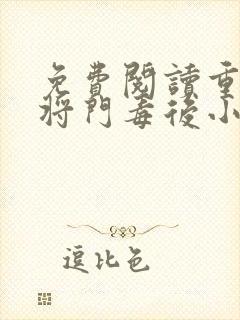 免費閱讀重
將門毒後小
逗比色